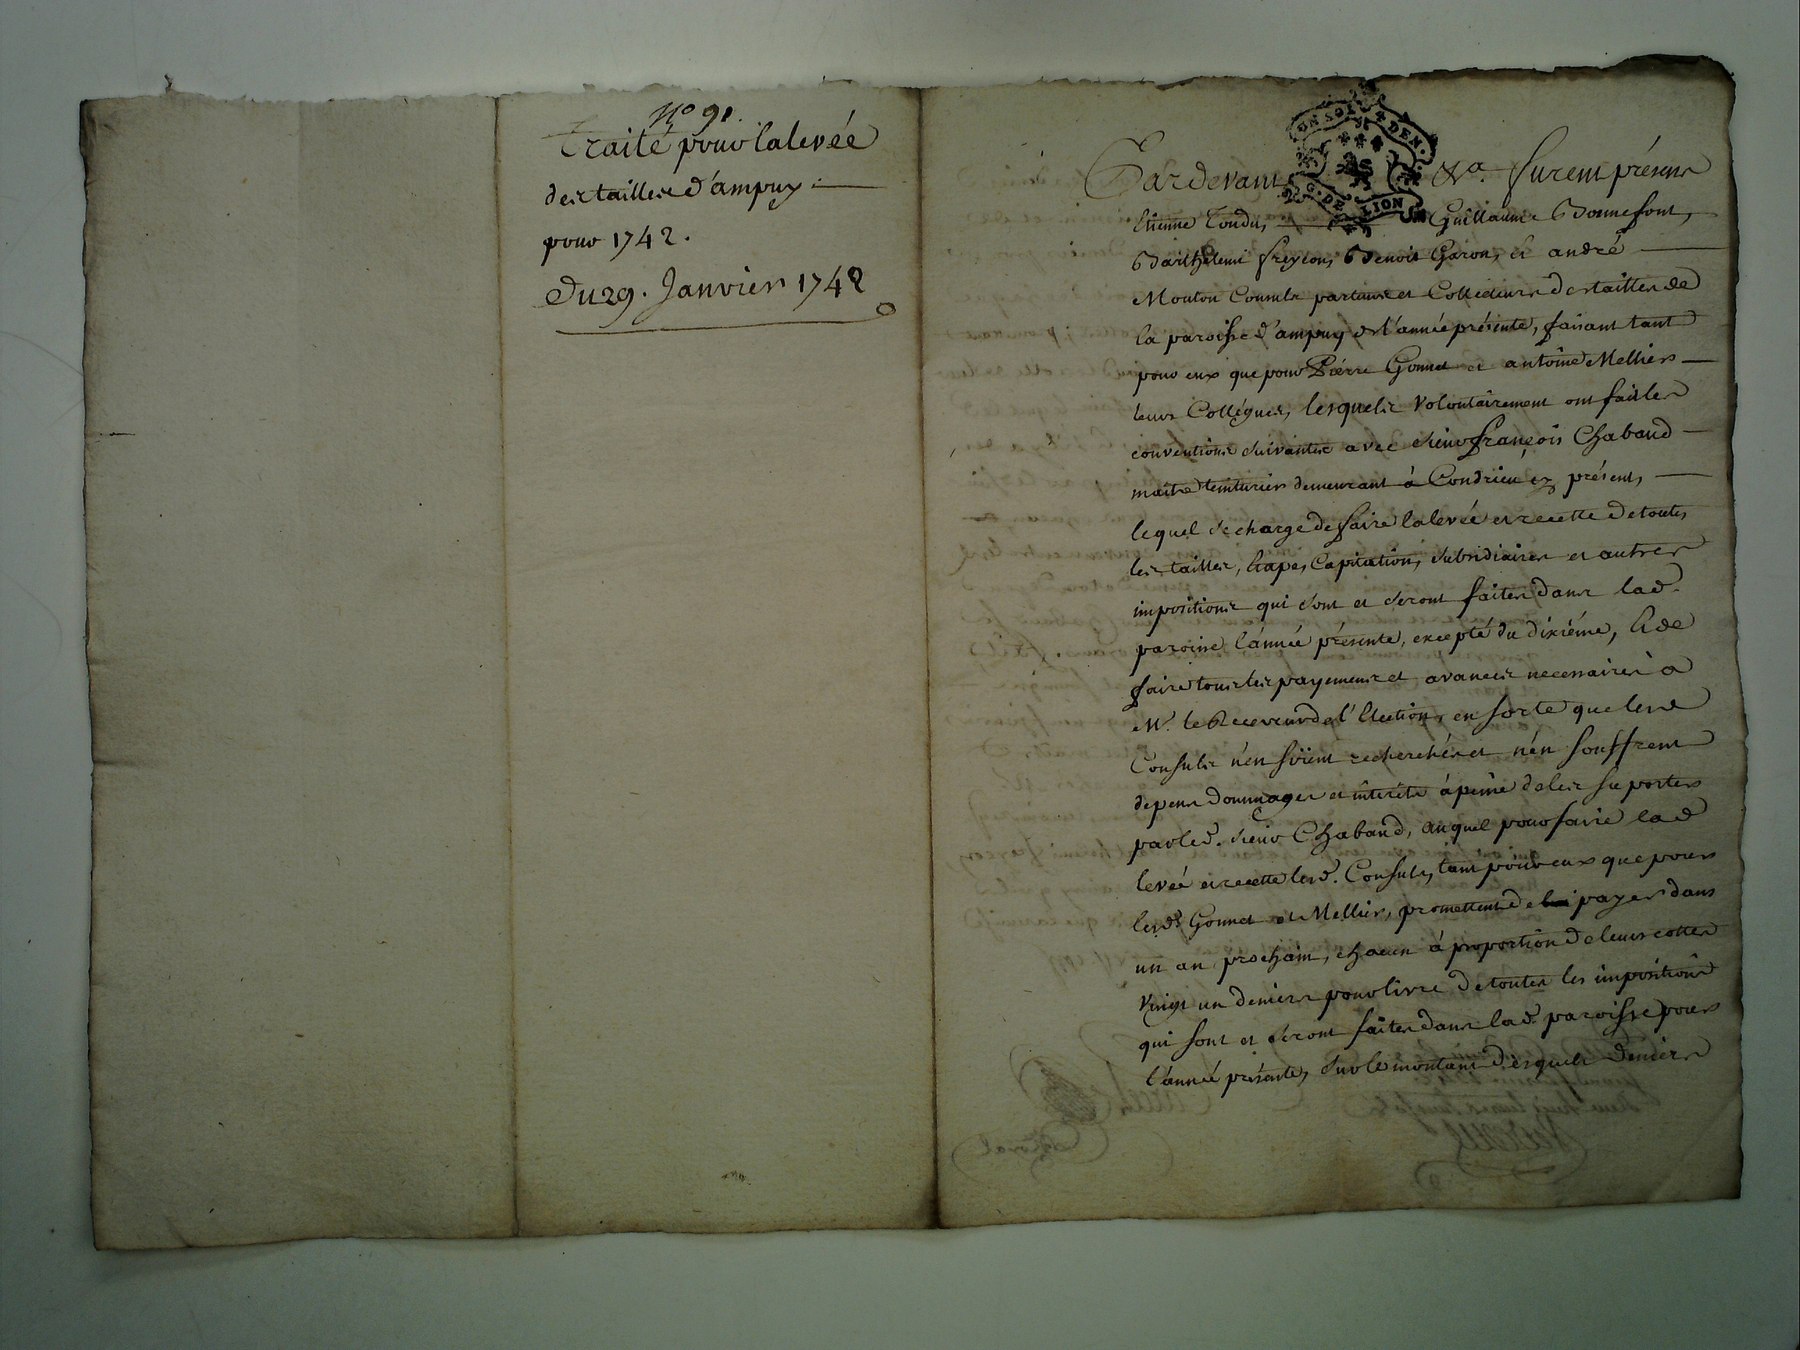 N.º 91.
Traité pour la levée
des tailles d'ampuy
pour 1742.
Du 29. Janvier 1742
UN SOL 4 DEN.
G. DE LION
Pardevant &a. furent présens
Etienne Guillaume Bonnefont,
Barthelemi freycon, Benoit Garon, et andré
Mouton Consuls parteurs et Collecteurs des tailles de
la paroisse d'ampuy de l'année présente, faisant tant
pour eux que pour Pierre Gonnet et antoine Mellier
leurs Collégues, lesquels volontairement ont fait les
conventions suivantes avec sieur françois Chabaud
maitre teinturier demeurant à Condrieu ez présent,
lequel se charge de faire la levée et recette de toutes
les tailles, Etapes, Capitation, subsidiaires et autres
impositions qui sont et seront faites dans lad.
paroisse l'année présente, excepté du dixiéme, Et de
faire tous les payemens et avances necessaires a
Mr. le Receveur de l'Election, en sorte que lesd
Consuls n'en soient recherchés et n'en souffrent
depens dommages et intérêts à peine de les suporter
par led. sieur Chabaud, auquel pour faire lad
levée et recette lesd. Consuls, tant pour eux que pour
lesds Gonnet et Mellier, promettent de payer dans
un an prochain, chacun à proportion de leurs cottes
vingt un deniers pour livre de toutes les impositions
qui sont et seront faites dans lad. paroisse pour
l'année présente, sur le montant desquels deniers